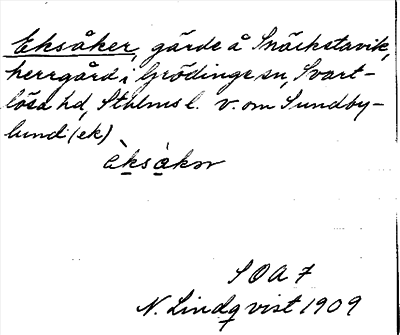 Eksåker, gärde å Snäckstavik,
herrgård i Grödinge sn, Svart-
lösa hd, Sthlms l. v. om Sundby-
lund (ek)
èksàkər
SOA 7
N. Lindqvist 1909